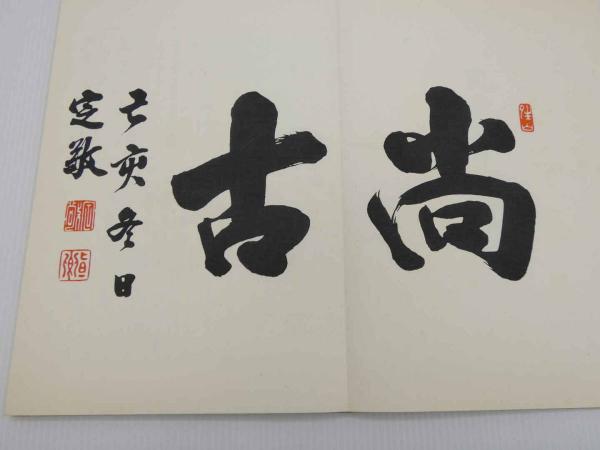 尚古
己亥冬日
定敬